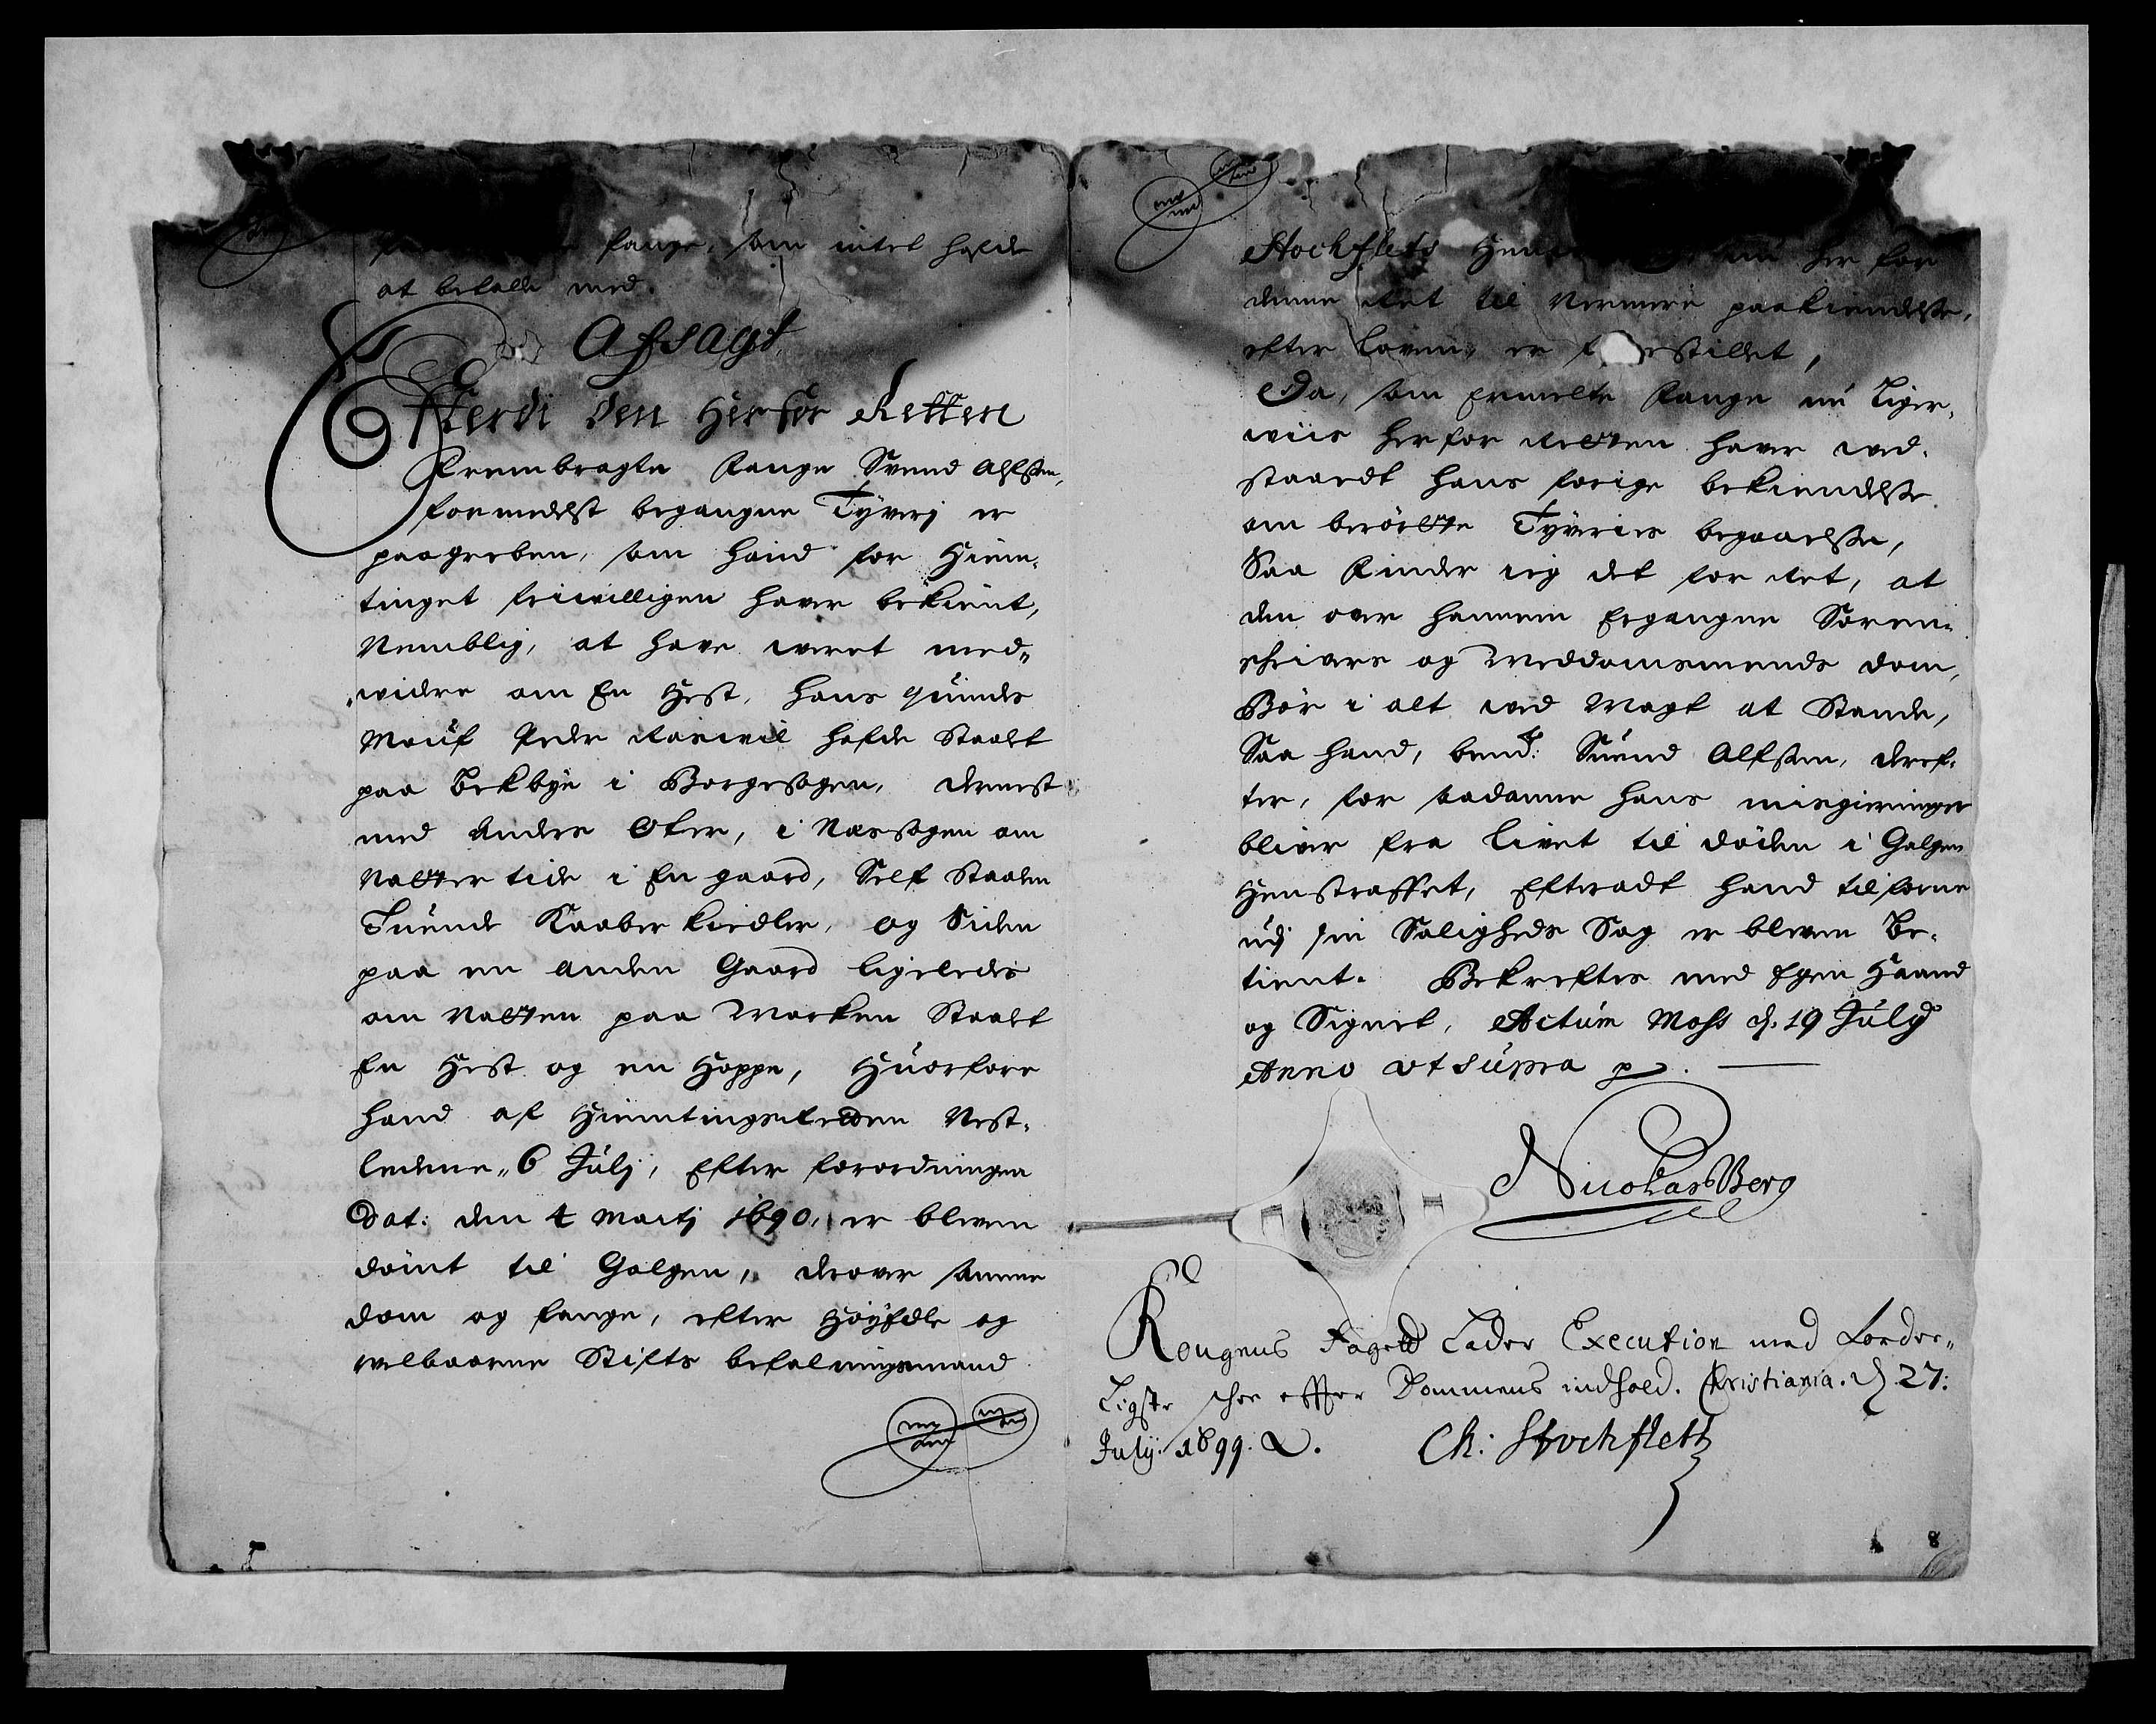 fange, som intet hafde
at betalle med.
Afsagt
Efterdi den Herfor Retten
Frembragte Fange Svend Alfssen,
formedelst begangne Tÿverj er
paagreben, som hand for Hiem-
tinget friwilligen haver bekient,
Nemblig, at have weret med-
widere om En Hest, hans quindes
Peder hafde Staalt
paa Bekbÿe i Borgesogen, dernest
med Anders Oker, i Næssogen om
Natter tide i En gaard, Self Staalen
Tuende Kaaber kiedler, og Siden
paa en Anden Gaard ligeledes
om Natten paa Marken Staalt
En Hest og en Hoppe, Huorfore
hand af Hiemtingsretten Nest-
ledene 6 Julj, Efter forordningen
Dat: den 4 Martj 1690, er bleven
dømt til Galgen, derover samme
dom og fange, efter Høÿædle og
welbaarne Stifts befalningsmand
Stochflets nu her for
denne Ret til Nermere paakiendelse,
efter Loven, er stillet,
Da, som Ermelte Fange nu Liger-
wiis her for Retten haver wed-
staaedt hans forige bekiendelse
om berørte Tÿveries begaaelse,
Saa Kiender ieg det for Ret, at
den over hannem Ergangne Soren-
schrivers og Meddomsmends dom,
Bør i alt wed Magt at Stande,
Saa hand, bemt: Suend Alfssen, deref-
ter, for saadanne hans misgierninger
bliver fra Livet til døden i Galgen
Henstraffet, Efteradt hand tilforne
udj sin Saligheds Sag er bleven Be-
tient. Bekreftes med Egen Haand
og Signet, Actum Moss d. 19 Julÿ
Anno ut supra p.
Nicolas Berg
Kongens Foged Lader Execution med forder-
Ligste schee effter Dommens indhold. Christiania. d. 27:
Julÿ: 1699.
Ch: Stochflett
8